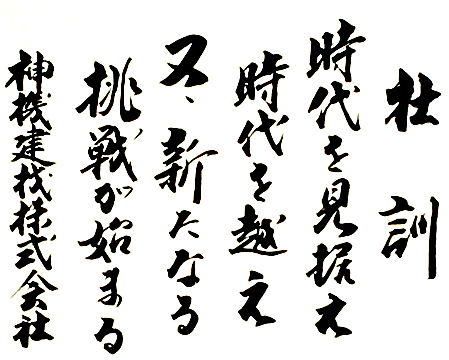 社訓
時代を見据え
時代を越え
又、新たなる
挑戦が始まる
神機建材株式会社